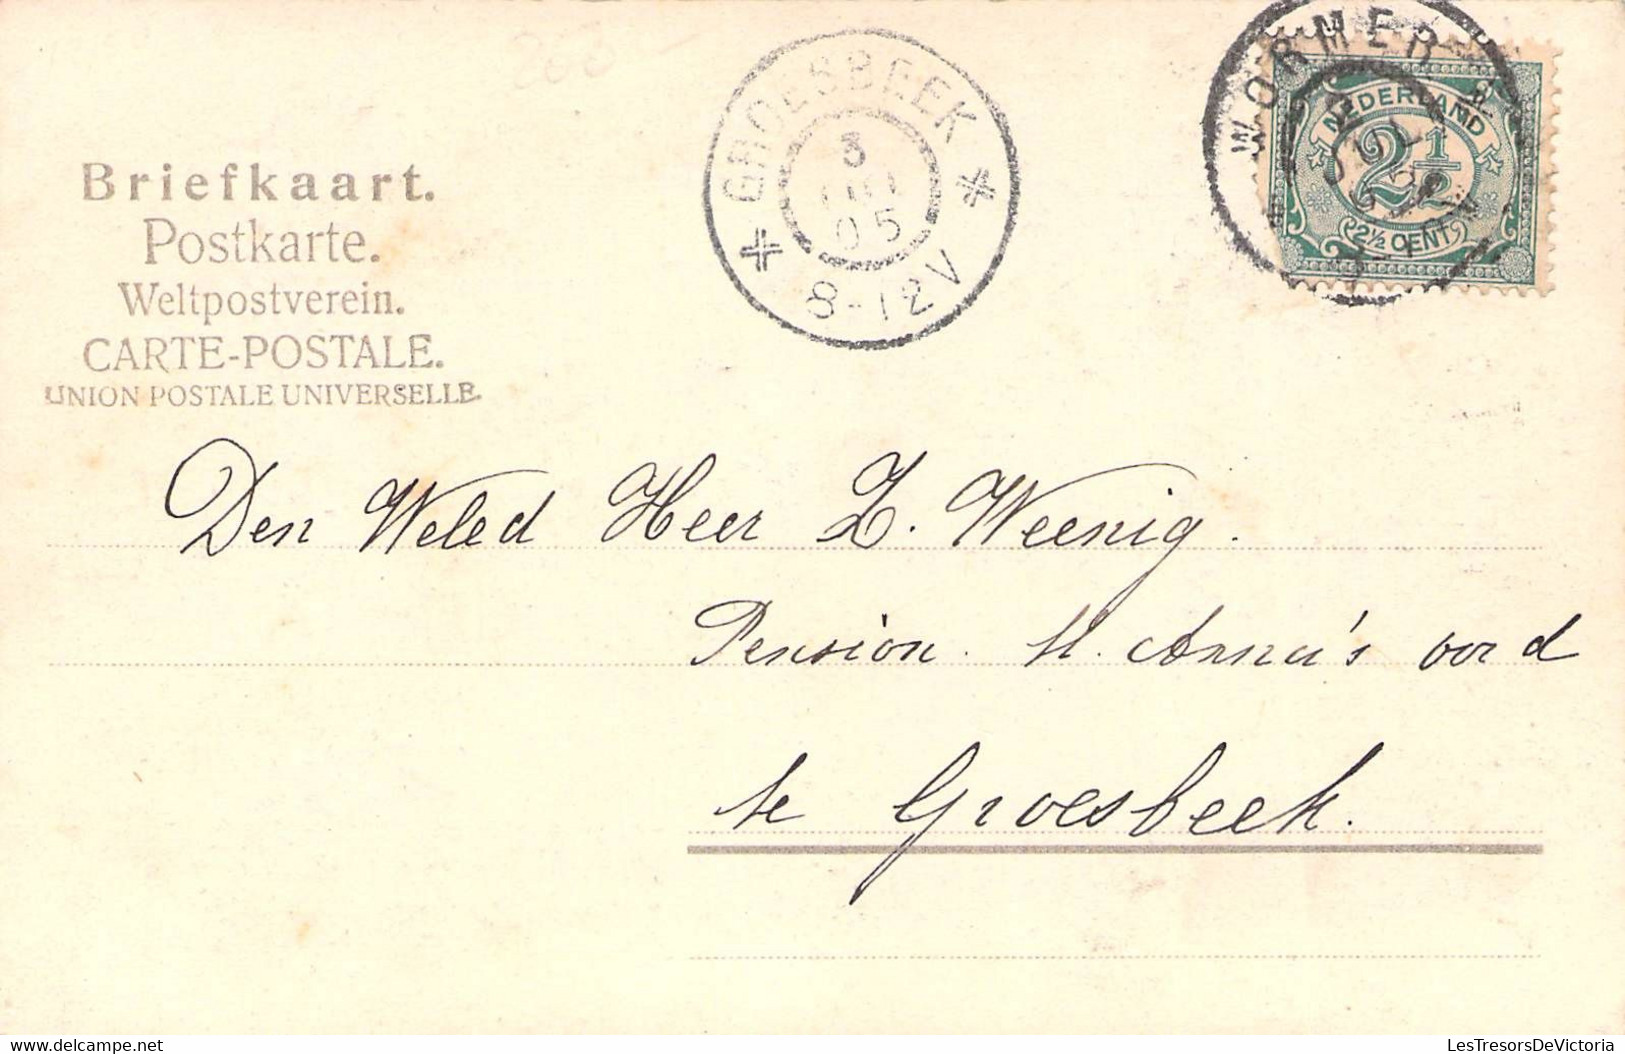 Briefkaart.
Postkarte.
Weltpostverein.
CARTE-POSTALE.
UNION POSTALE UNIVERSELLE.
GROESBEEK
3
05
8-12V
WORMER
NEDERLAND
2½
2½ CENT
Den Weled Heer Z. Weenig.
Pension St. Anna's oord
te Groesbeek.
https://www.delcampe.net
LesTresorsDeVictoria